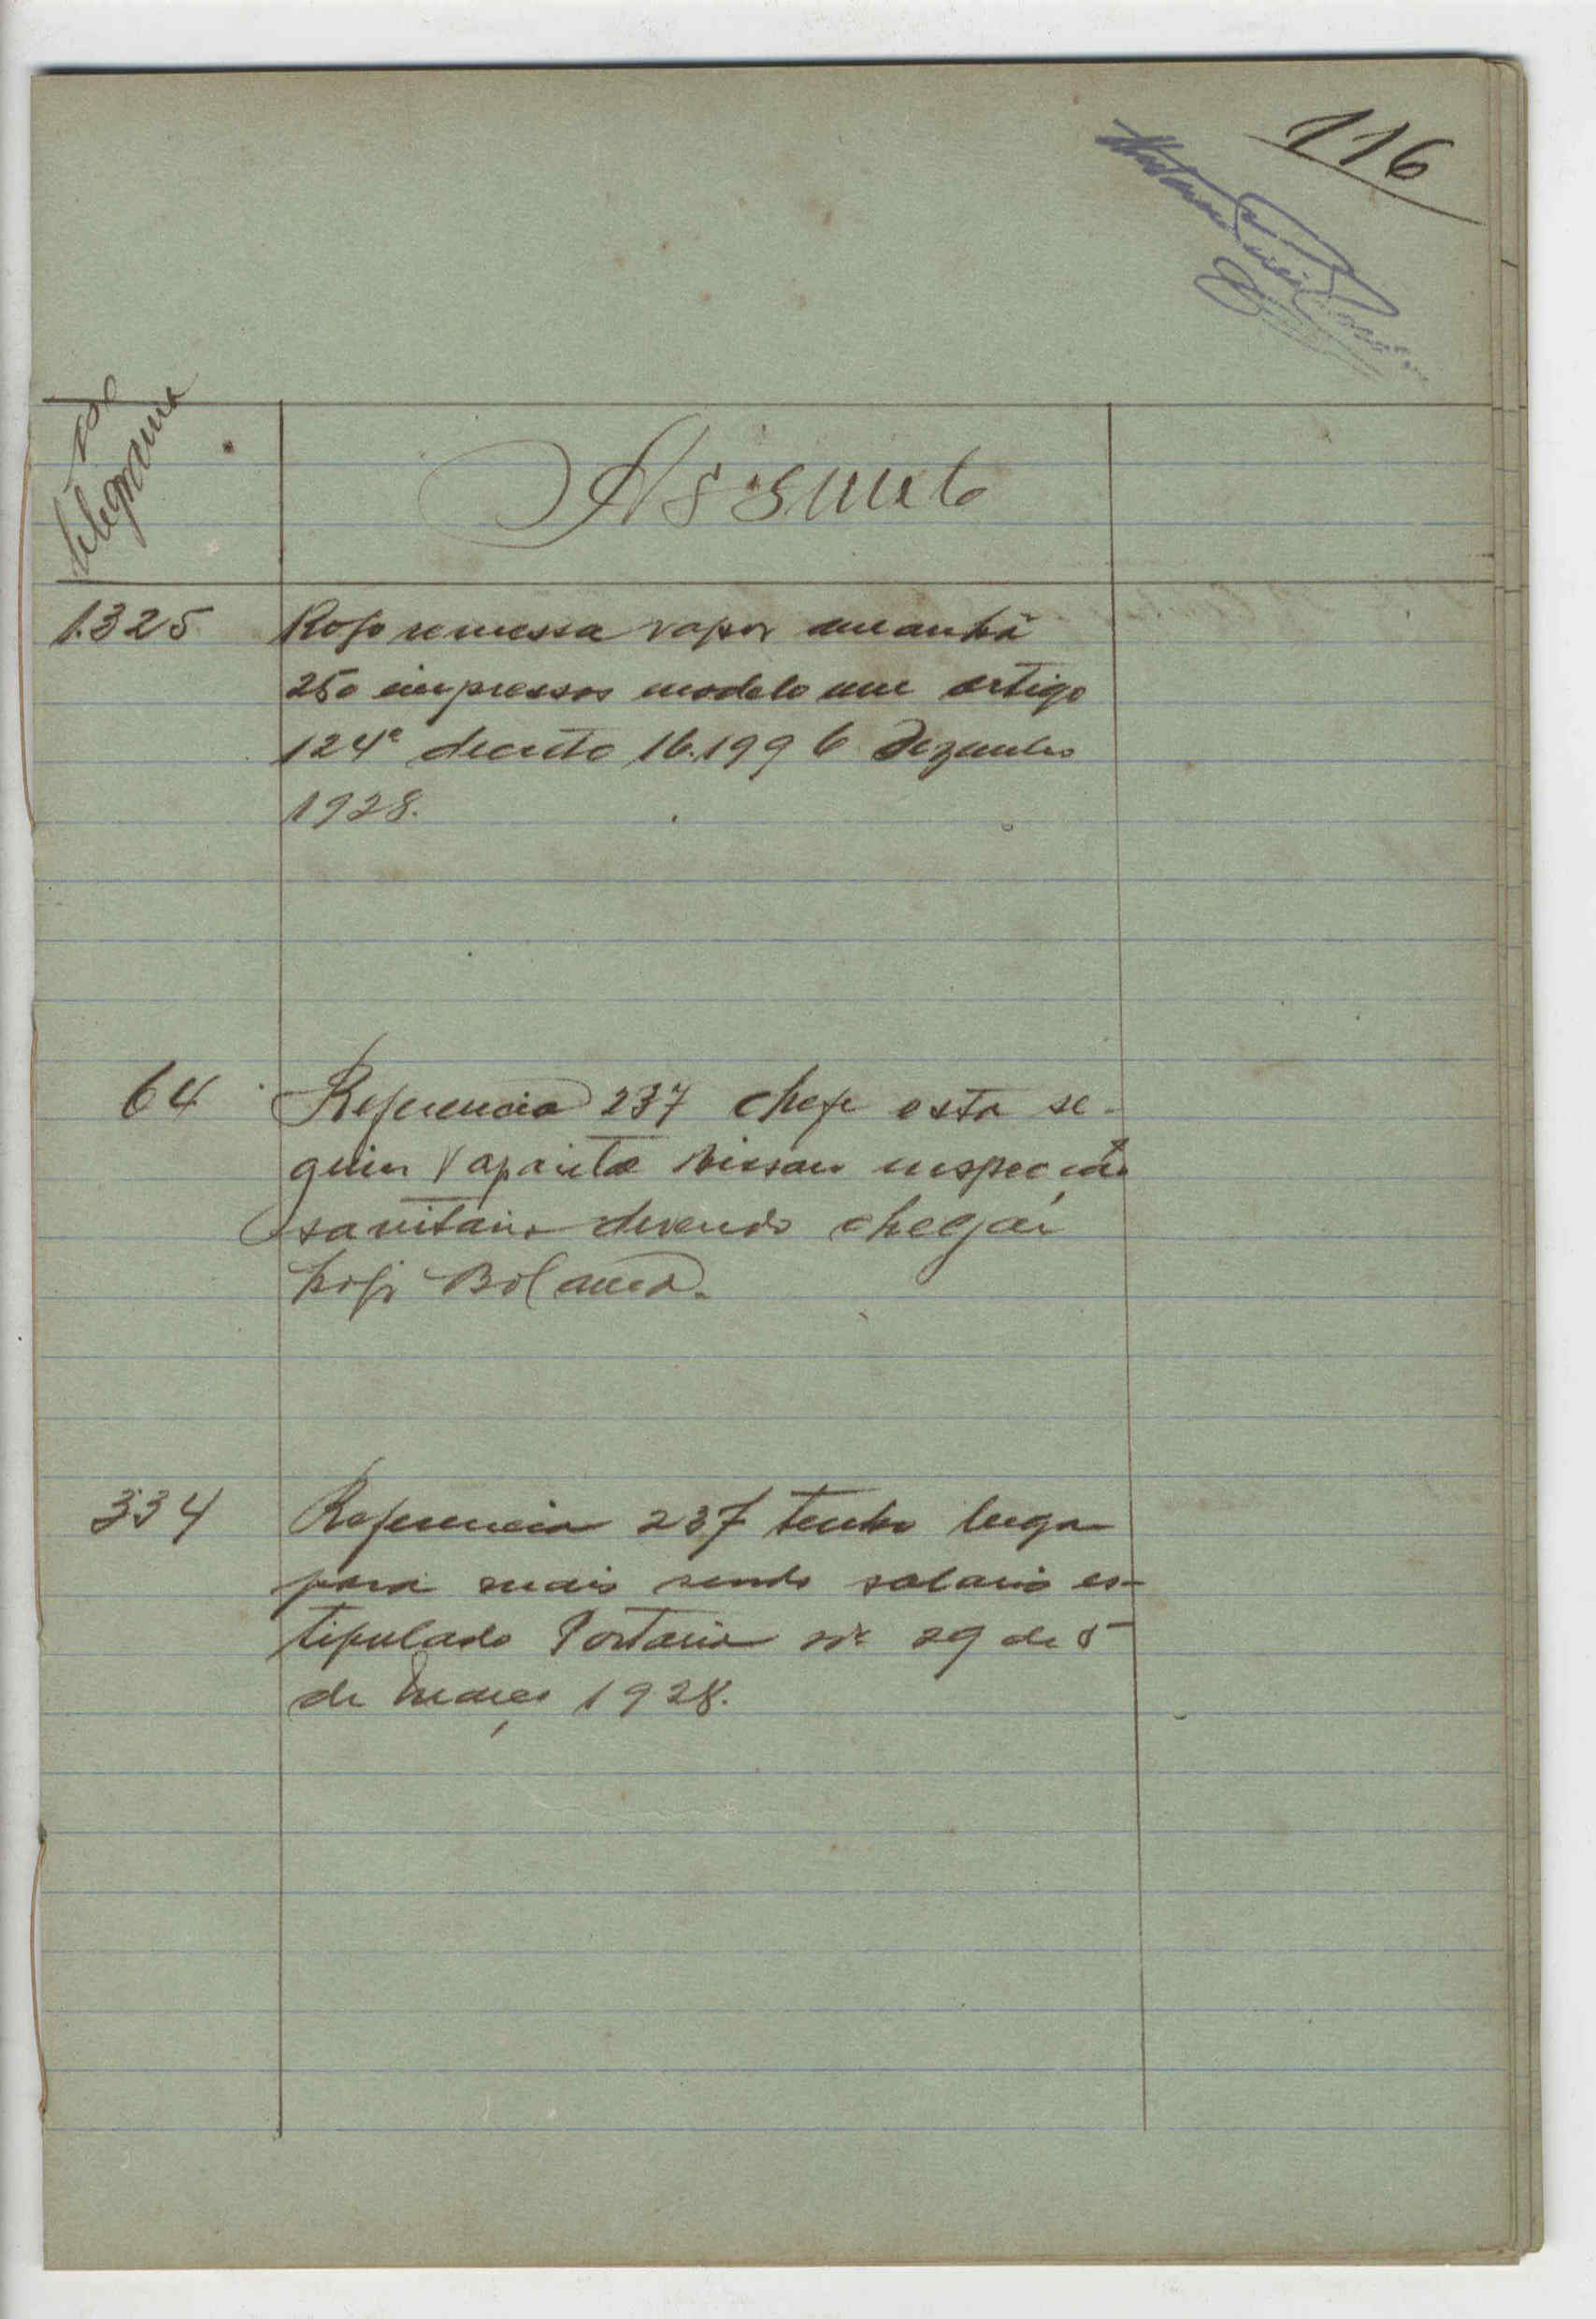 116
Nº
telegrama
Assunto
1.325 Rogo remessa vapor amanhã
250 impressos modelo um artigo
124º decreto 16.199 6 Dezembro
1928.
64 Referencia 237 chefe esta se-
guiu Vapor Bissau inspecção
sanitaria devendo chegar
hoje Bolama.
334 Referencia 237 tenho lugar
para mais sendo salario es-
tipulado Portaria nº 29 de 5
de Março 1928.